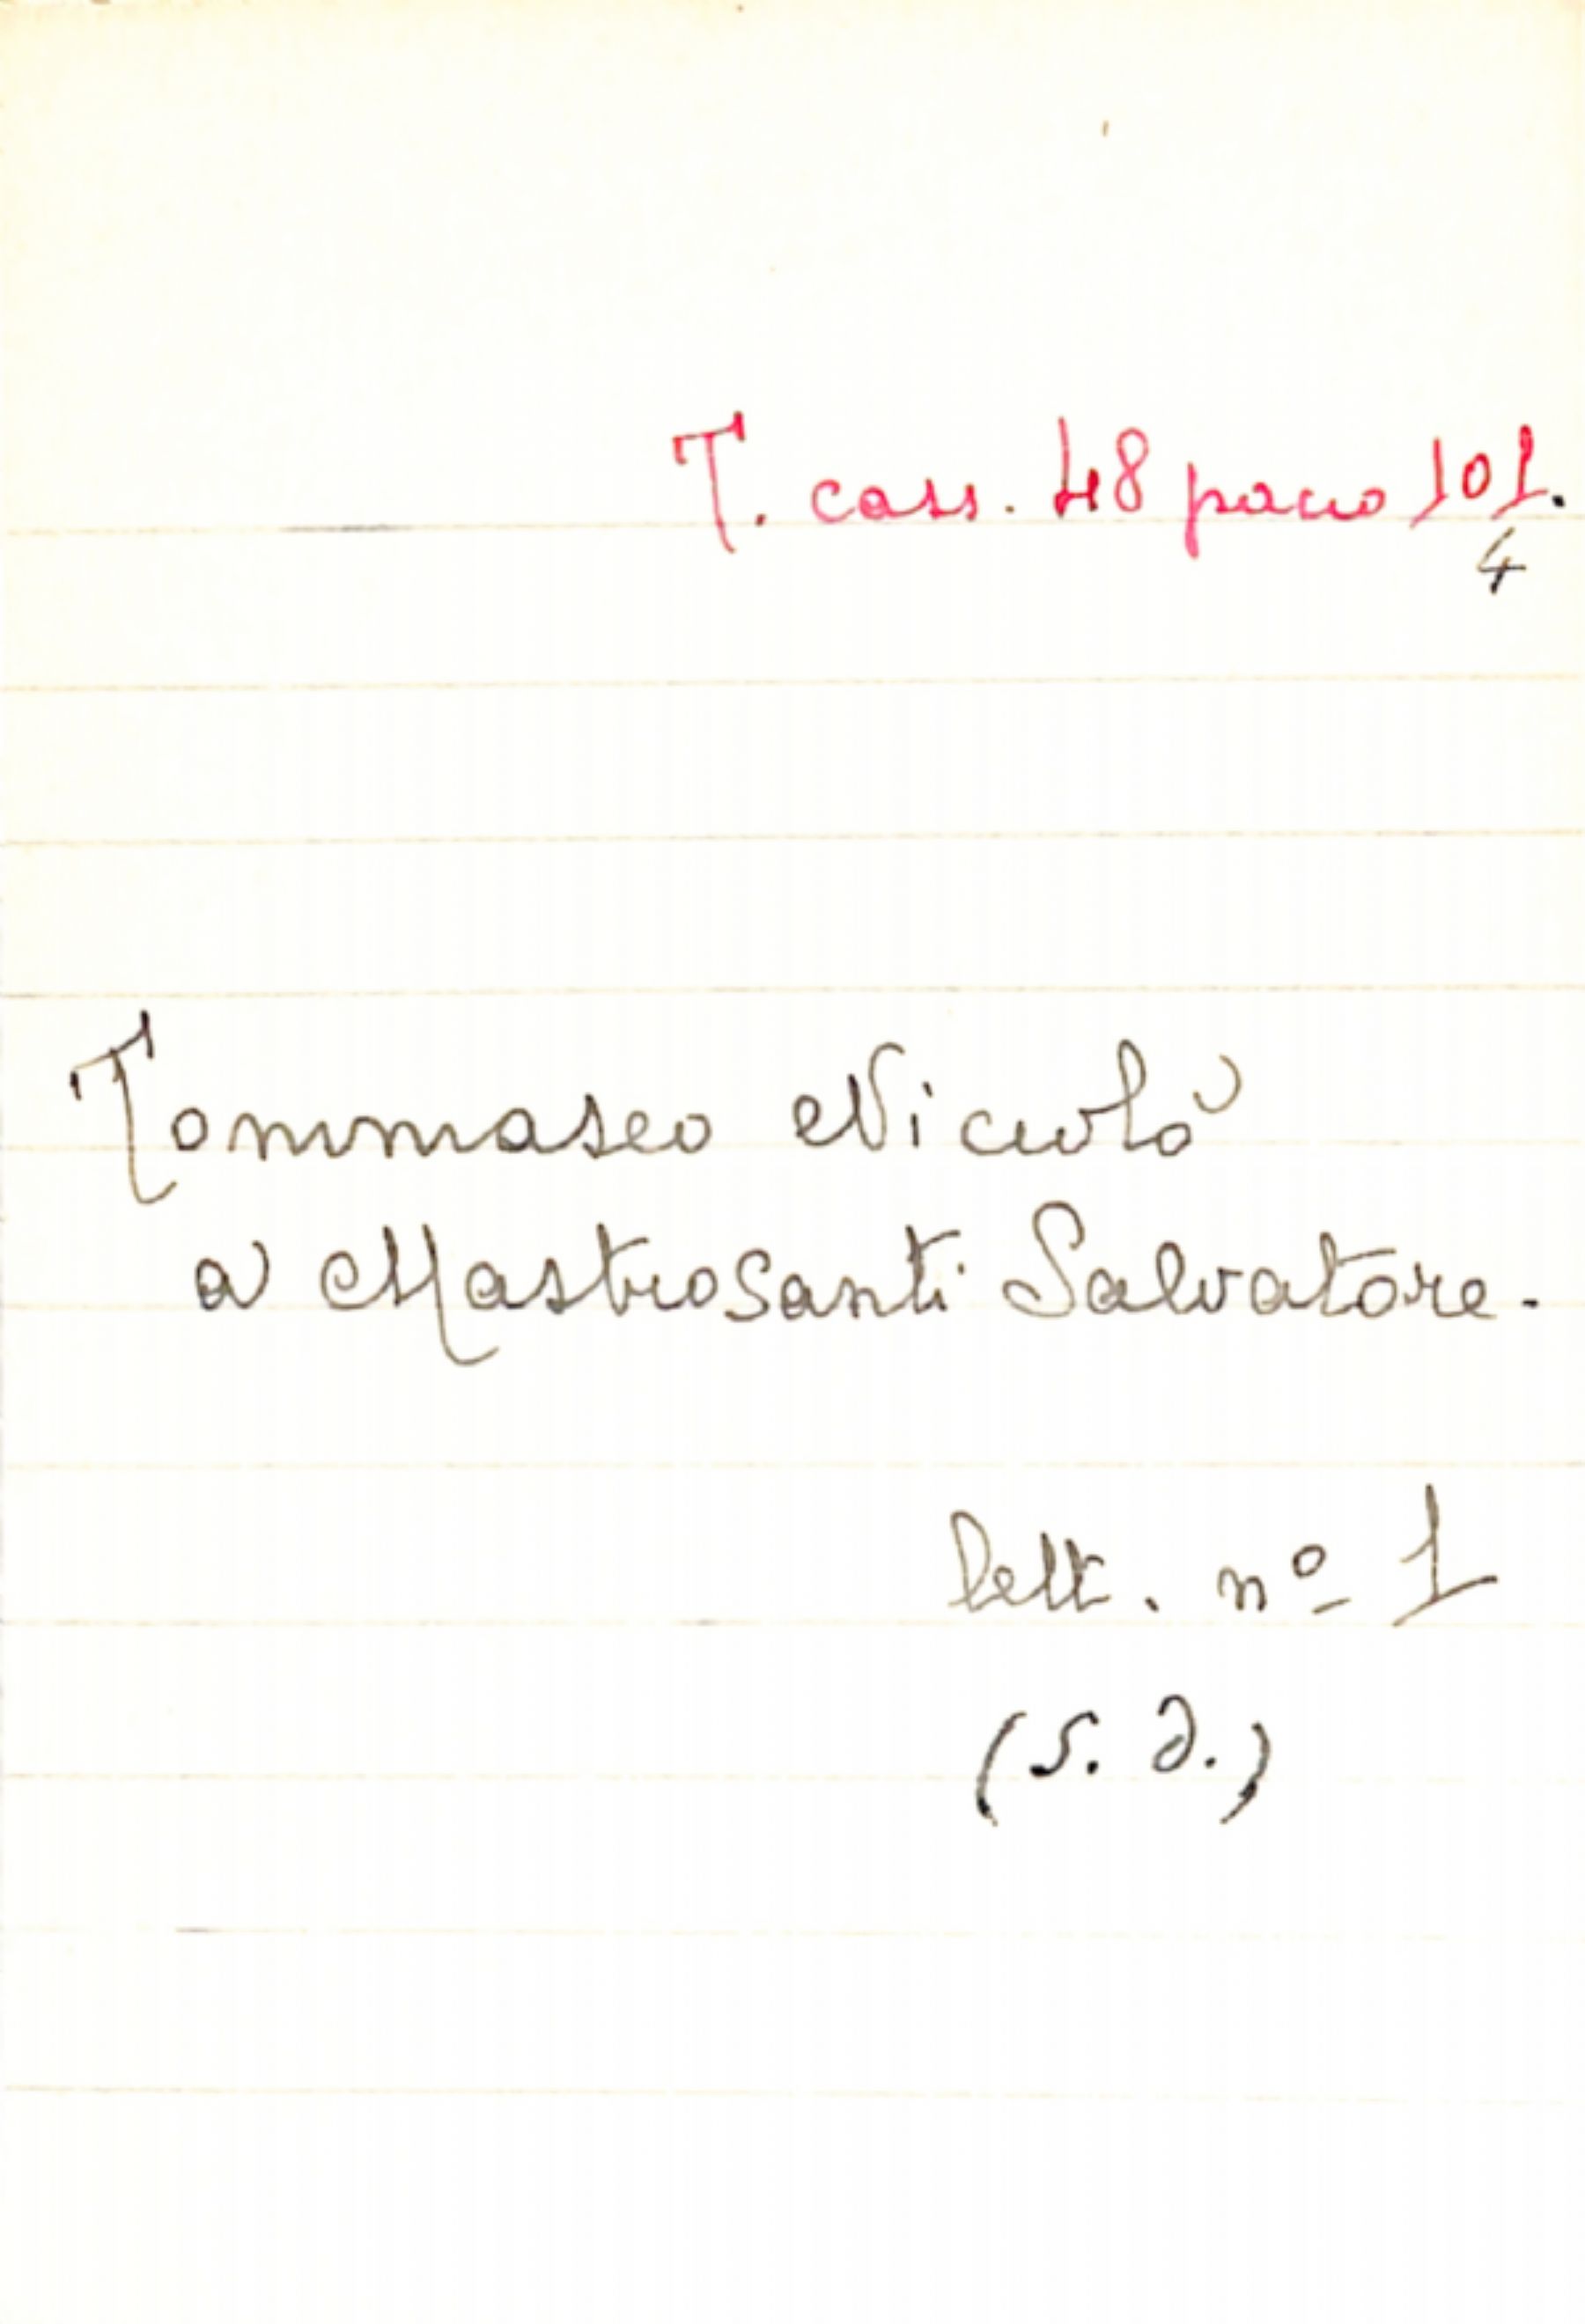 T. cass. 48 pacco 101.
4
Tommaseo Niccolò
a Mastrosanti Salvatore.
Lett. nº 1
(s. d.)